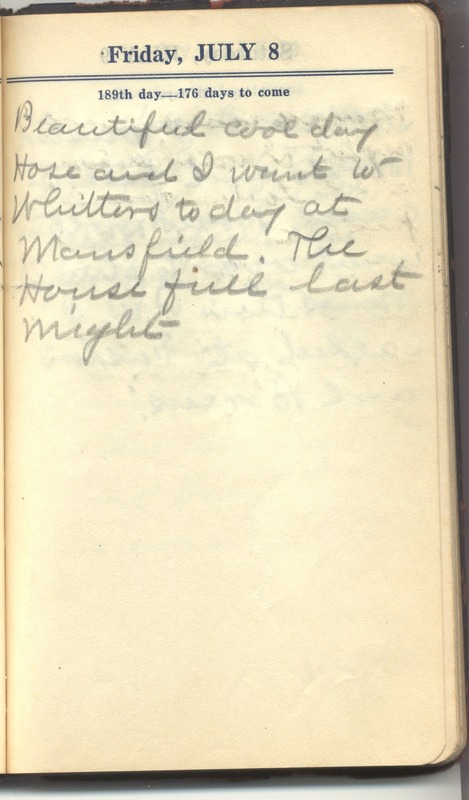 Friday, JULY 8
189th day—176 days to come
Beautiful cool day
Hose and I went to
Whitters today at
Mansfield. The
House full last
Might